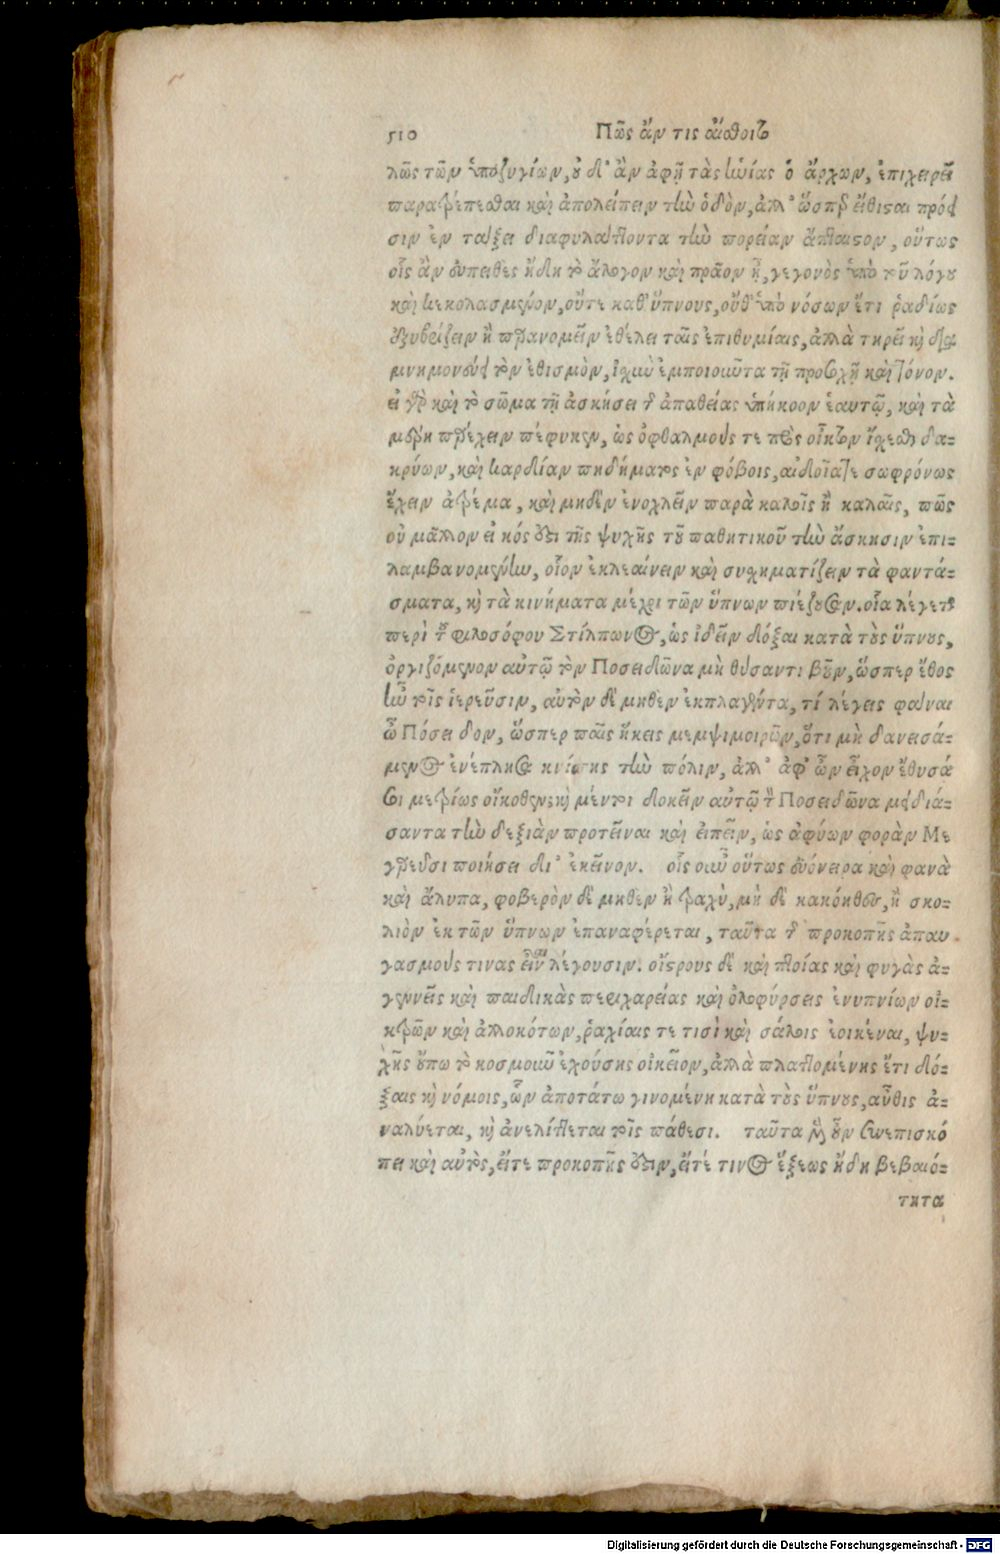 510 Πῶς ἄν τις αἴσθοιτο
λῶς τῶν ὑποζυγίων, οὐδ' ἂν ἀφῇ τὰς ἡνίας ὁ ἄρχων, ἐπιχειρεῖ
παρατρέπεσθαι καὶ ἀπολείπειν τὴν ὁδὸν, ἀλλ' ὥσπερ εἴθισαι πρόε
σιν ἐν τάξει διαφυλάττοντα τὴν πορείαν ἄπταιστον, οὕτως
οἷς ἂν εὐπειθὲς ἤδη τὸ ἄλογον καὶ πρᾶον ᾖ, γεγονὸς ὑπὸ τοῦ λόγου
καὶ κεκολασμένον, οὔτε καθ' ὕπνους, οὔθ' ὑπὸ νόσων ἔτι ῥαδίως
ἐξυβρίζειν ἢ παρανομεῖν ἐθέλει ταῖς ἐπιθυμίαις, ἀλλὰ τηρεῖ καὶ δια
μνημονεύει τὸν ἐθισμὸν, ἰσχὺν ἐμποιοῦντα τῇ προσοχῇ καὶ τόνον.
εἰ γὰρ καὶ τὸ σῶμα τῇ ἀσκήσει τῆς ἀπαθείας ὑπήκοον ἑαυτῷ, καὶ τὰ
μέρη παρέχειν πέφυκεν, ὡς ὀφθαλμούς τε πρὸς οἶκτον ἴσχεσθαι δα-
κρύων, καὶ καρδίαν πηδήματος ἐν φόβοις, αἰδοῖά τε σωφρόνως
ἔχειν ἀτρέμα, καὶ μηδὲν ἐνοχλεῖν παρὰ καλοῖς ἢ καλαῖς, πῶς
οὐ μᾶλλον εἰκός ἐστι τῆς ψυχῆς τοῦ παθητικοῦ τὴν ἄσκησιν ἐπι-
λαμβανομένην, οἷον ἐκλεαίνειν καὶ συσχηματίζειν τὰ φαντά-
σματα, καὶ τὰ κινήματα μέχρι τῶν ὕπνων πιέζουσαν. οἷα λέγεται
περὶ τοῦ φιλοσόφου Στίλπωνος, ὡς ἰδεῖν δόξαι κατὰ τοὺς ὕπνους,
ὀργιζόμενον αὐτῷ τὸν Ποσειδῶνα μὴ θύσαντι βοῦν, ὥσπερ ἔθος
ἦν τοῖς ἱερεῦσιν, αὐτὸν δὲ μηθὲν ἐκπλαγέντα, τί λέγεις φάναι
ὦ Πόσειδον, ὥσπερ παῖς ἥκεις μεμψιμοιρῶν, ὅτι μὴ δανεισά-
μενος ἐνέπλησα κνίσης τὴν πόλιν, ἀλλ' ἀφ' ὧν εἶχον ἔθυσά
σοι μετρίως οἴκοθεν; καὶ μέντοι δοκεῖν αὐτῷ τὸν Ποσειδῶνα μειδιά-
σαντα τὴν δεξιὰν προτεῖναι καὶ εἰπεῖν, ὡς ἀφύων φορὰν Με
γαρεῦσι ποιήσει δι' ἐκεῖνον. οἷς οὖν οὕτως εὐόνειρα καὶ φανὰ
καὶ ἄλυπα, φοβερὸν δὲ μηθὲν ἢ τραχὺ, μὴ δὲ κακόηθες, ἢ σκο-
λιὸν ἐκ τῶν ὕπνων ἐπαναφέρεται, ταῦτα τῆς προκοπῆς ἀπαυ
γασμούς τινας εἶναι λέγουσιν. οἴστρους δὲ καὶ πτοίας καὶ φυγὰς ἀ-
γεννεῖς καὶ παιδικὰς περιχαρείας καὶ ὀλοφύρσεις ἐνυπνίων οἰ-
κτρῶν καὶ ἀλλοκότων, ῥαχίαις τε τισὶ καὶ σάλοις ἐοικέναι, ψυ-
χῆς οὔπω τὸ κοσμοῦν ἐχούσης οἰκεῖον, ἀλλὰ πλαττομένης ἔτι δό-
ξαις καὶ νόμοις, ὧν ἀποτάτω γινομένη κατὰ τοὺς ὕπνους, αὖθις ἀ-
ναλύεται, καὶ ἀνελίττεται τοῖς πάθεσι. ταῦτα μὲν οὖν συνεπισκό
πει καὶ αὐτὸς, εἴτε προκοπῆς ἐστιν, εἴτέ τινος ἕξεως ἤδη βεβαιό-
τητα
Digitalisierung gefördert durch die Deutsche Forschungsgemeinschaft - DFG